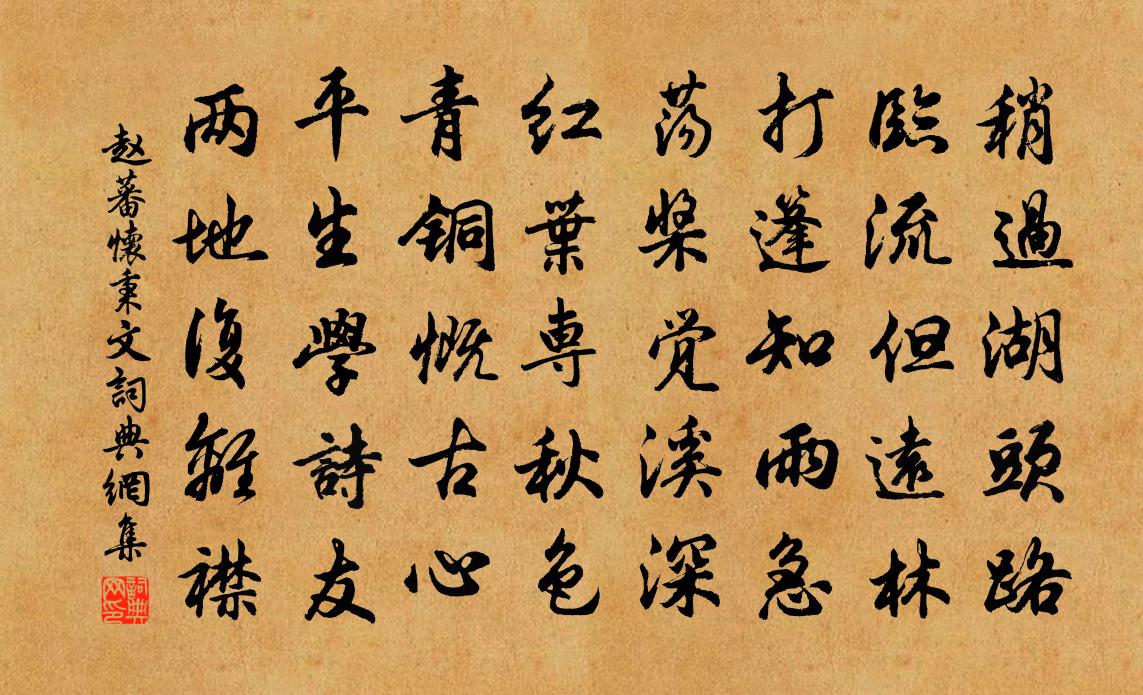 稍過湖頭路
臨流但遠林
打蓬知雨急
蕩槳覺溪深
红葉専秋色
青铜慨古心
平生學詩友
两地復離襟
赵蕃懷秉文詞典網集
詞典网印